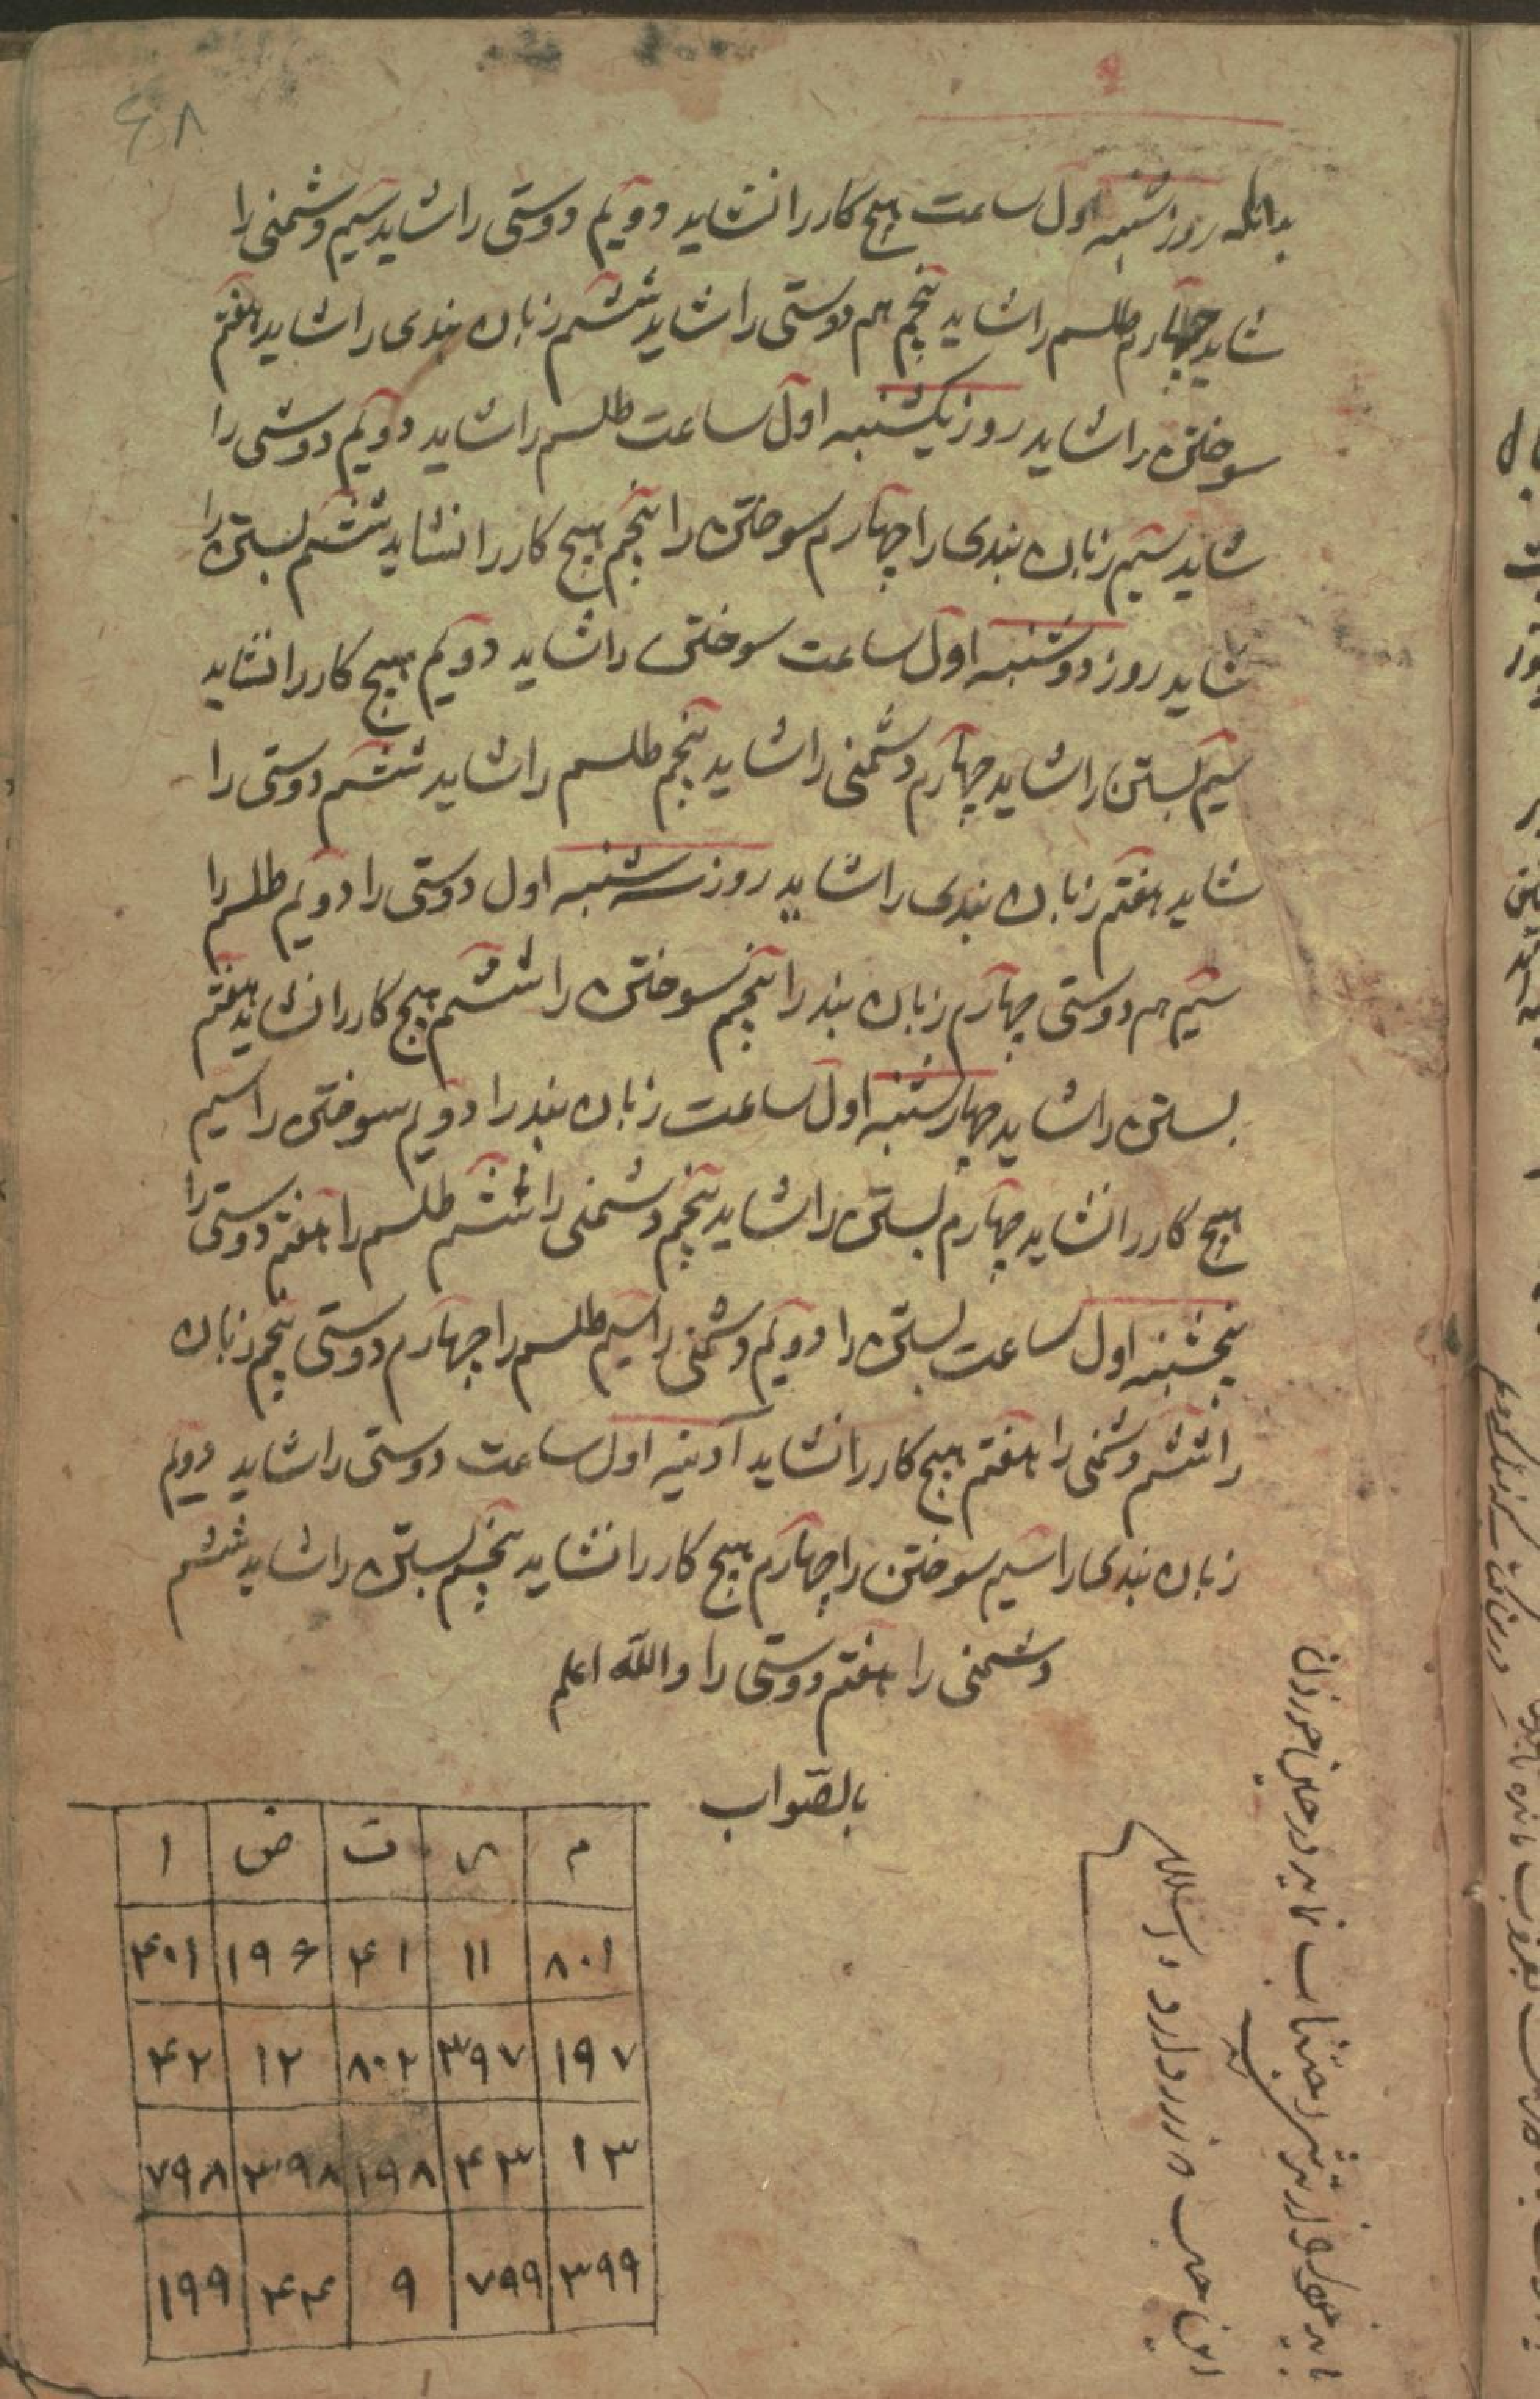 ۶۸
بدانکه روز شنبه اول ساعت هیچ کار را نشاید دویم دوستی را شاید سیم دشمنی را
شاید چهارم طلسم را شاید پنجم هم دوستی را شاید ششم زبان بندی را شاید هفتم
سوختن را شاید روز یکشنبه اول ساعت طلسم را شاید دویم دوستی را
شاید سیم زبان بندی را چهارم سوختن را پنجم هیچ کار را نشاید ششم بستن را
شاید روز دوشنبه اول ساعت سوختن را شاید دویم هیچ کار را نشاید
سیم بستن را شاید چهارم دشمنی را شاید پنجم طلسم را شاید ششم دوستی را
شاید هفتم زبان بندی را شاید روز سه شنبه اول دوستی را دویم طلسم را
سیم هم دوستی چهارم زبان بند را پنجم سوختن را ششم هیچ کار را نشاید هفتم
بستن را شاید چهارشنبه اول ساعت زبان بند را دویم سوختن را سیم
هیچ کار را نشاید چهارم بستن را شاید پنجم دشمنی را ششم طلسم را هفتم دوستی را
پنجشنبه اول ساعت بستن را دویم دشمنی را سیم طلسم را چهارم دوستی پنجم زبان
را ششم دشمنی را هفتم هیچ کار را نشاید آدینه اول ساعت دوستی را شاید دویم
زبان بندی را سیم سوختن را چهارم هیچ کار را نشاید پنجم بستن را شاید ششم
دشمنی را هفتم دوستی را والله اعلم
بالصواب
م ت ض ا
۸۰۱ ۱۱ ۴۱ ۱۹۶ ۴۰۱
۱۹۷ ۳۹۷ ۸۰۲ ۱۲ ۴۲
۱۳ ۴۳ ۱۹۸ ۳۹۸ ۷۹۸
۳۹۹ ۷۹۹ ۹ ۴۴ ۱۹۹
باید که از ترشی اجتناب نماید در حین خوردن
این حب